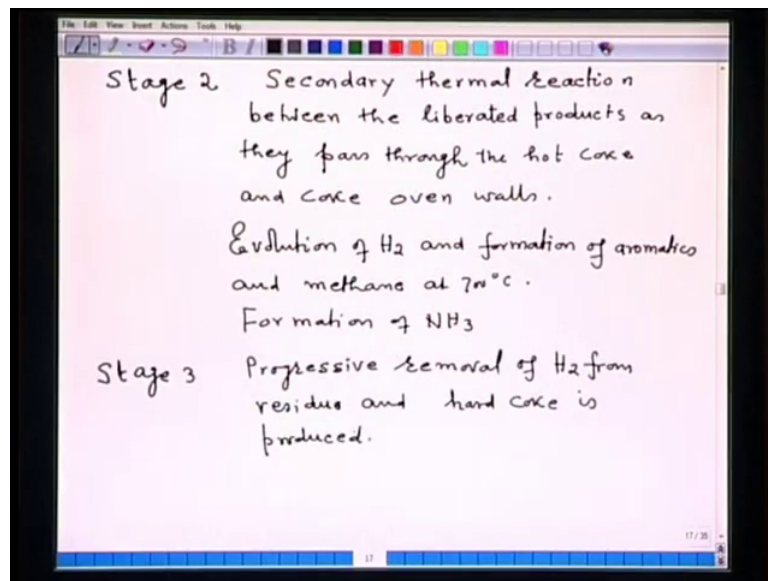 File Edit View Insert Actions Tools Help
B I
Stage 2 Secondary thermal reaction
between the liberated products as
they pass through the hot coke
and coke oven walls.
Evolution of H2 and formation of aromatics
and methane at 700°C.
Formation of NH3
Stage 3 Progressive removal of H2 from
residue and hard coke is
produced.
17/35
17